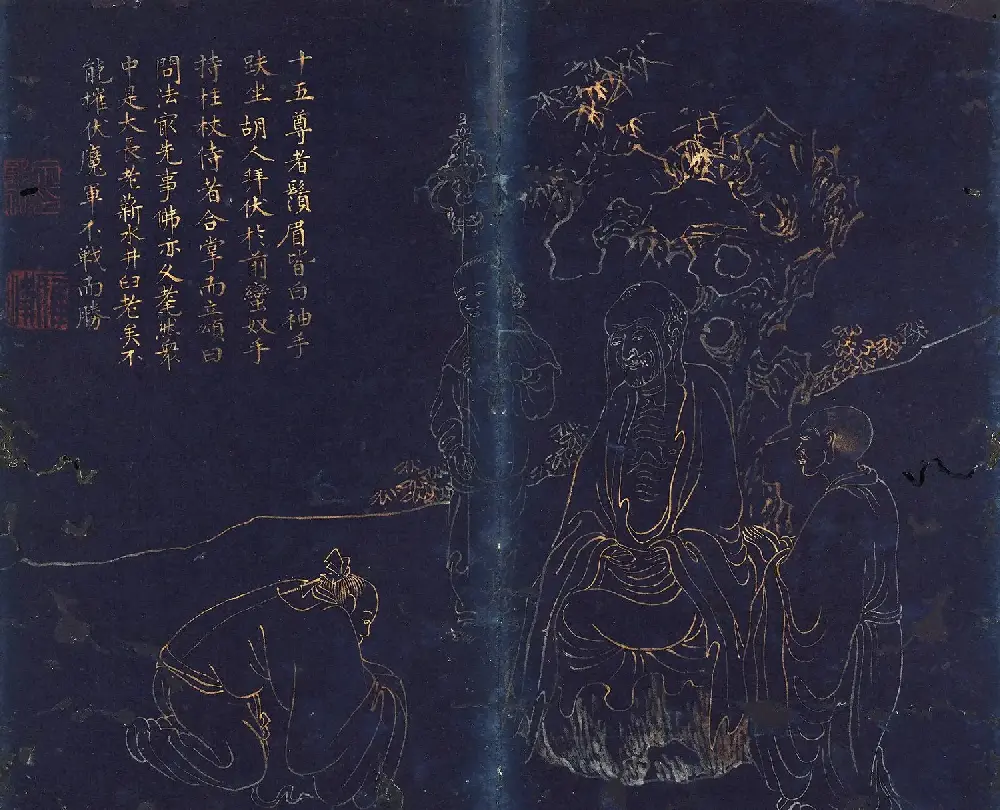 十五尊者鬚眉皆白袖手
趺坐胡人拜伏於前蠻奴手
持柱杖侍者合掌而立頌曰
問法寂先事佛亦久耄狀衆
中是大長老薪水井臼老矣不
能摧伏魔軍不戰而勝